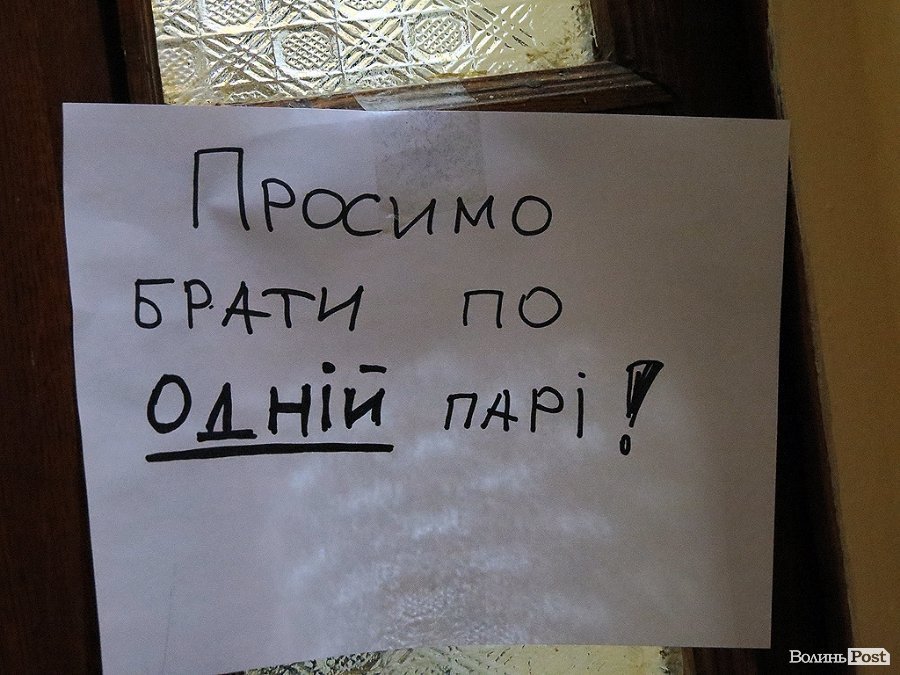 Просимо
брати по
одній парі!
ВолиньPost